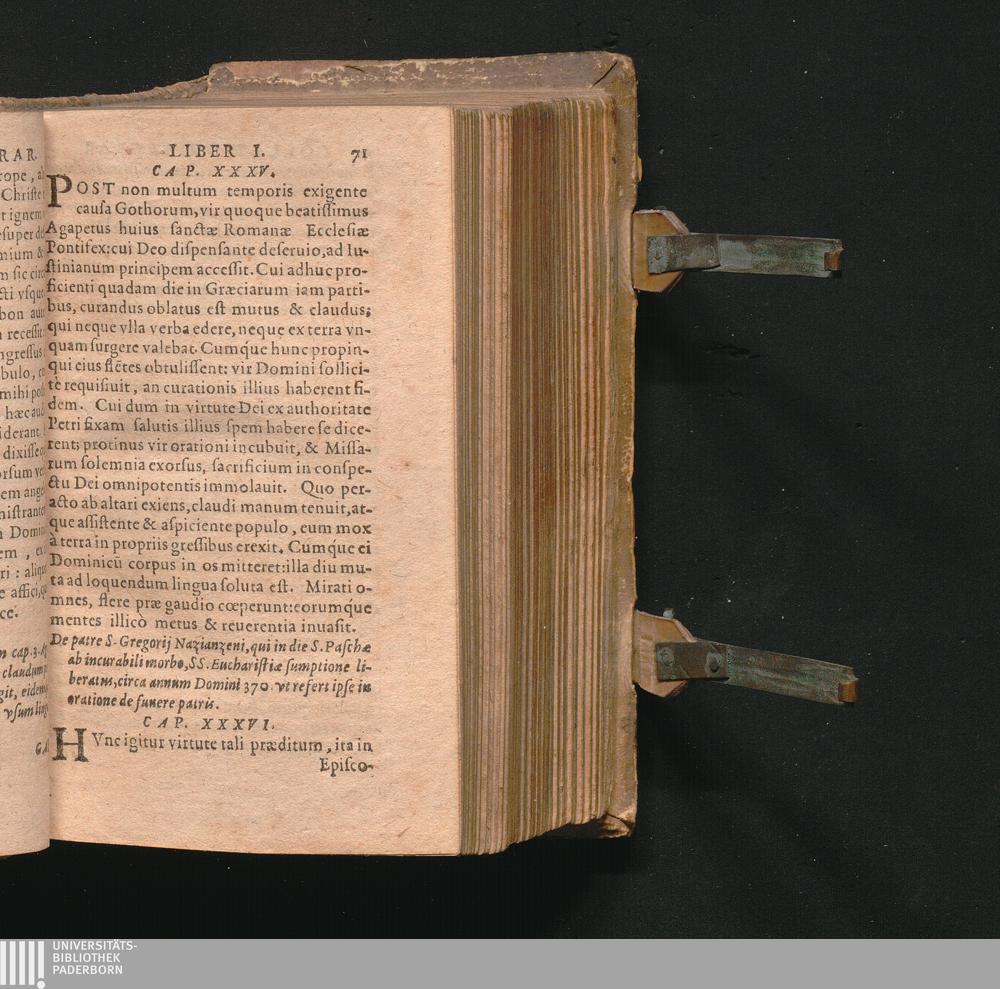 RAR.
rope, al
Christe
t ignem
super de
mium &
m sic circ
cti vsque
bon aut
recessit
ngressus
bulo, cu
mihi pos
hæc aud
siderant
dixisse
orsum ve
em ange
nistrante
n Domin
em, ex
ri: aliqu
e affici, q
ce.
n cap. 3.
claudum
git, eidem
vsum ling
GA
LIBER I. 71
CAP. XXXV.
POST non multum temporis exigente
causa Gothorum, vir quoque beatissimus
Agapetus huius sanctæ Romanæ Ecclesiæ
Pontifex: cui Deo dispensante deseruio, ad Iu-
stinianum principem accessit. Cui adhuc pro-
ficienti quadam die in Græciarum iam parti-
bus, curandus oblatus est mutus & claudus;
qui neque vlla verba edere, neque ex terra vn-
quam surgere valebat. Cumq́ue hunc propin-
qui eius flẽtes obtulissent: vir Domini sollici-
tè requisiuit, an curationis illius haberent fi-
dem. Cui dum in virtute Dei ex authoritate
Petri fixam salutis illius spem habere se dice-
rent; protinus vir orationi incubuit, & Missa-
rum solemnia exorsus, sacrificium in conspe-
ctu Dei omnipotentis immolauit. Quo per-
acto ab altari exiens, claudi manum tenuit, at-
que assistente & aspiciente populo, eum mox
à terra in propriis gressibus erexit. Cumq́ue ei
Dominicũ corpus in os mitteret: illa diu mu-
ta ad loquendum lingua soluta est. Mirati o-
mnes, flere præ gaudio cœperunt: eorumq́ue
mentes illicò metus & reuerentia inuasit.
De patre S. Gregorij Nazianzeni, qui in die S. Paschæ
ab incurabili morbo, SS. Eucharistiæ sumptione li-
beratus, circa annum Domini 370 vt refert ipse in
oratione de funere patris.
CAP. XXXVI.
HVnc igitur virtute tali præditum, ita in
Episco-
UNIVERSITÄTS-
BIBLIOTHEK
PADERBORN